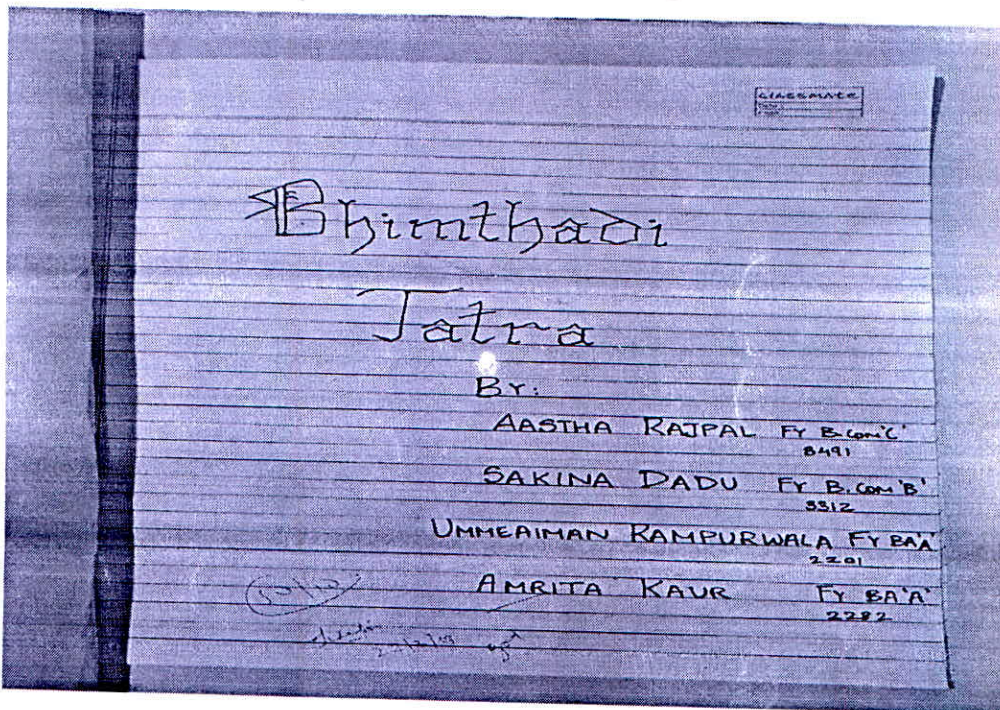 classmate
Bhimthadi
Jatra
BY:
AASTHA RAJPAL FY B.COM'C'
8491
SAKINA DADU FY B.COM'B'
3312
UMMEAIMAN RAMPURWALA FY BA'A'
2201
AMRITA KAUR FY BA'A'
2282